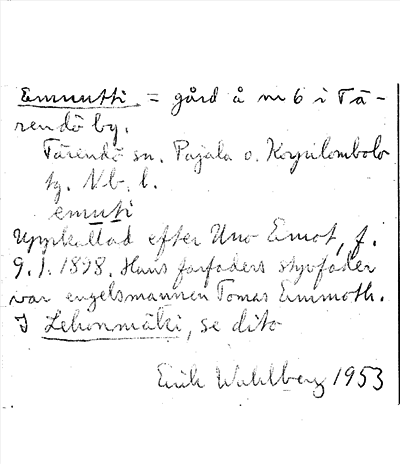 Emuutti = gård å nr 6 i Tä-
rendö by.
Tärendö sn. Pajala o. Korpilombolo
tg. Nb. l.
emuti
Uppkallad efter Uno Emot, f.
9.1.1898. Hans farfaders styvfader
var engelsmannen Tomas Emmoth.
I Lehonmäki, se dito
Erik Wahlberg 1953